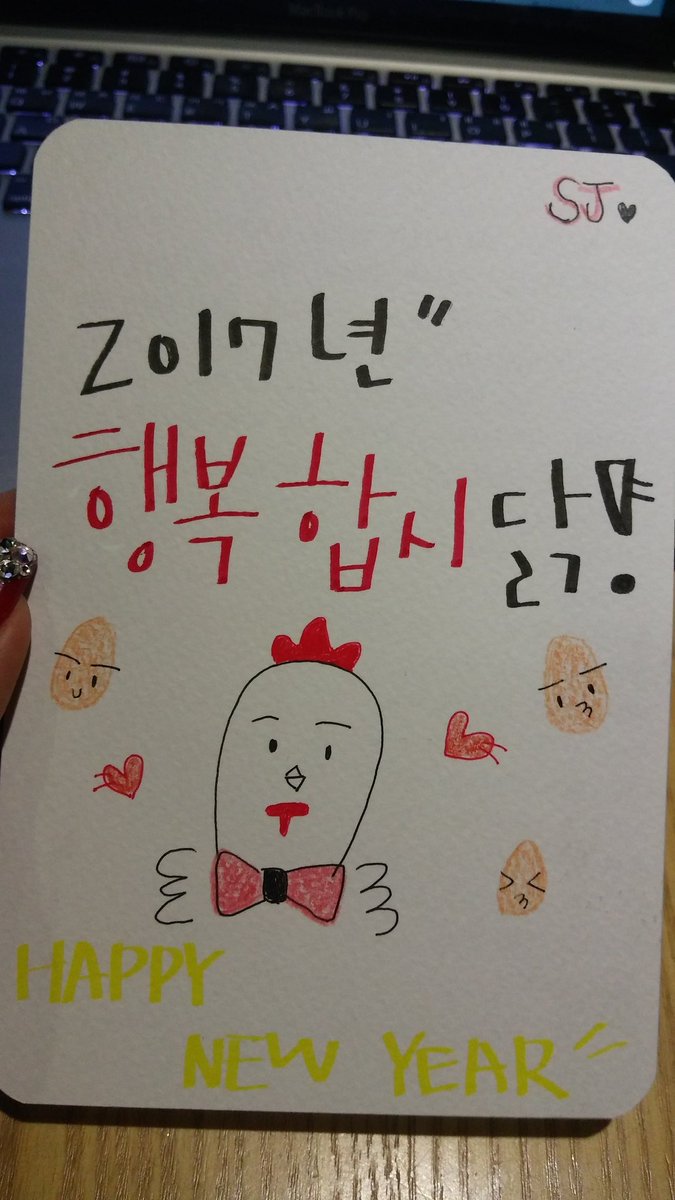 MacBook Pro
SJ♥
2017년〃
행복합시닭!〃
HAPPY
NEW YEAR〃